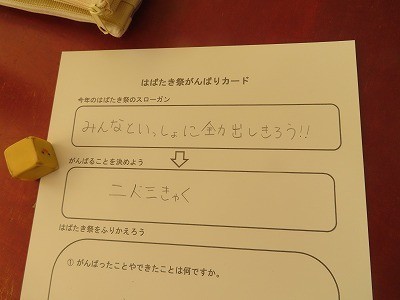 はばたき祭がんばりカード
今年のはばたき祭のスローガン
みんなといっしょに全力出しきろう!!
がんばることを決めよう
二人三きゃく
はばたき祭をふりかえろう
① がんばったことやできたことは何ですか。